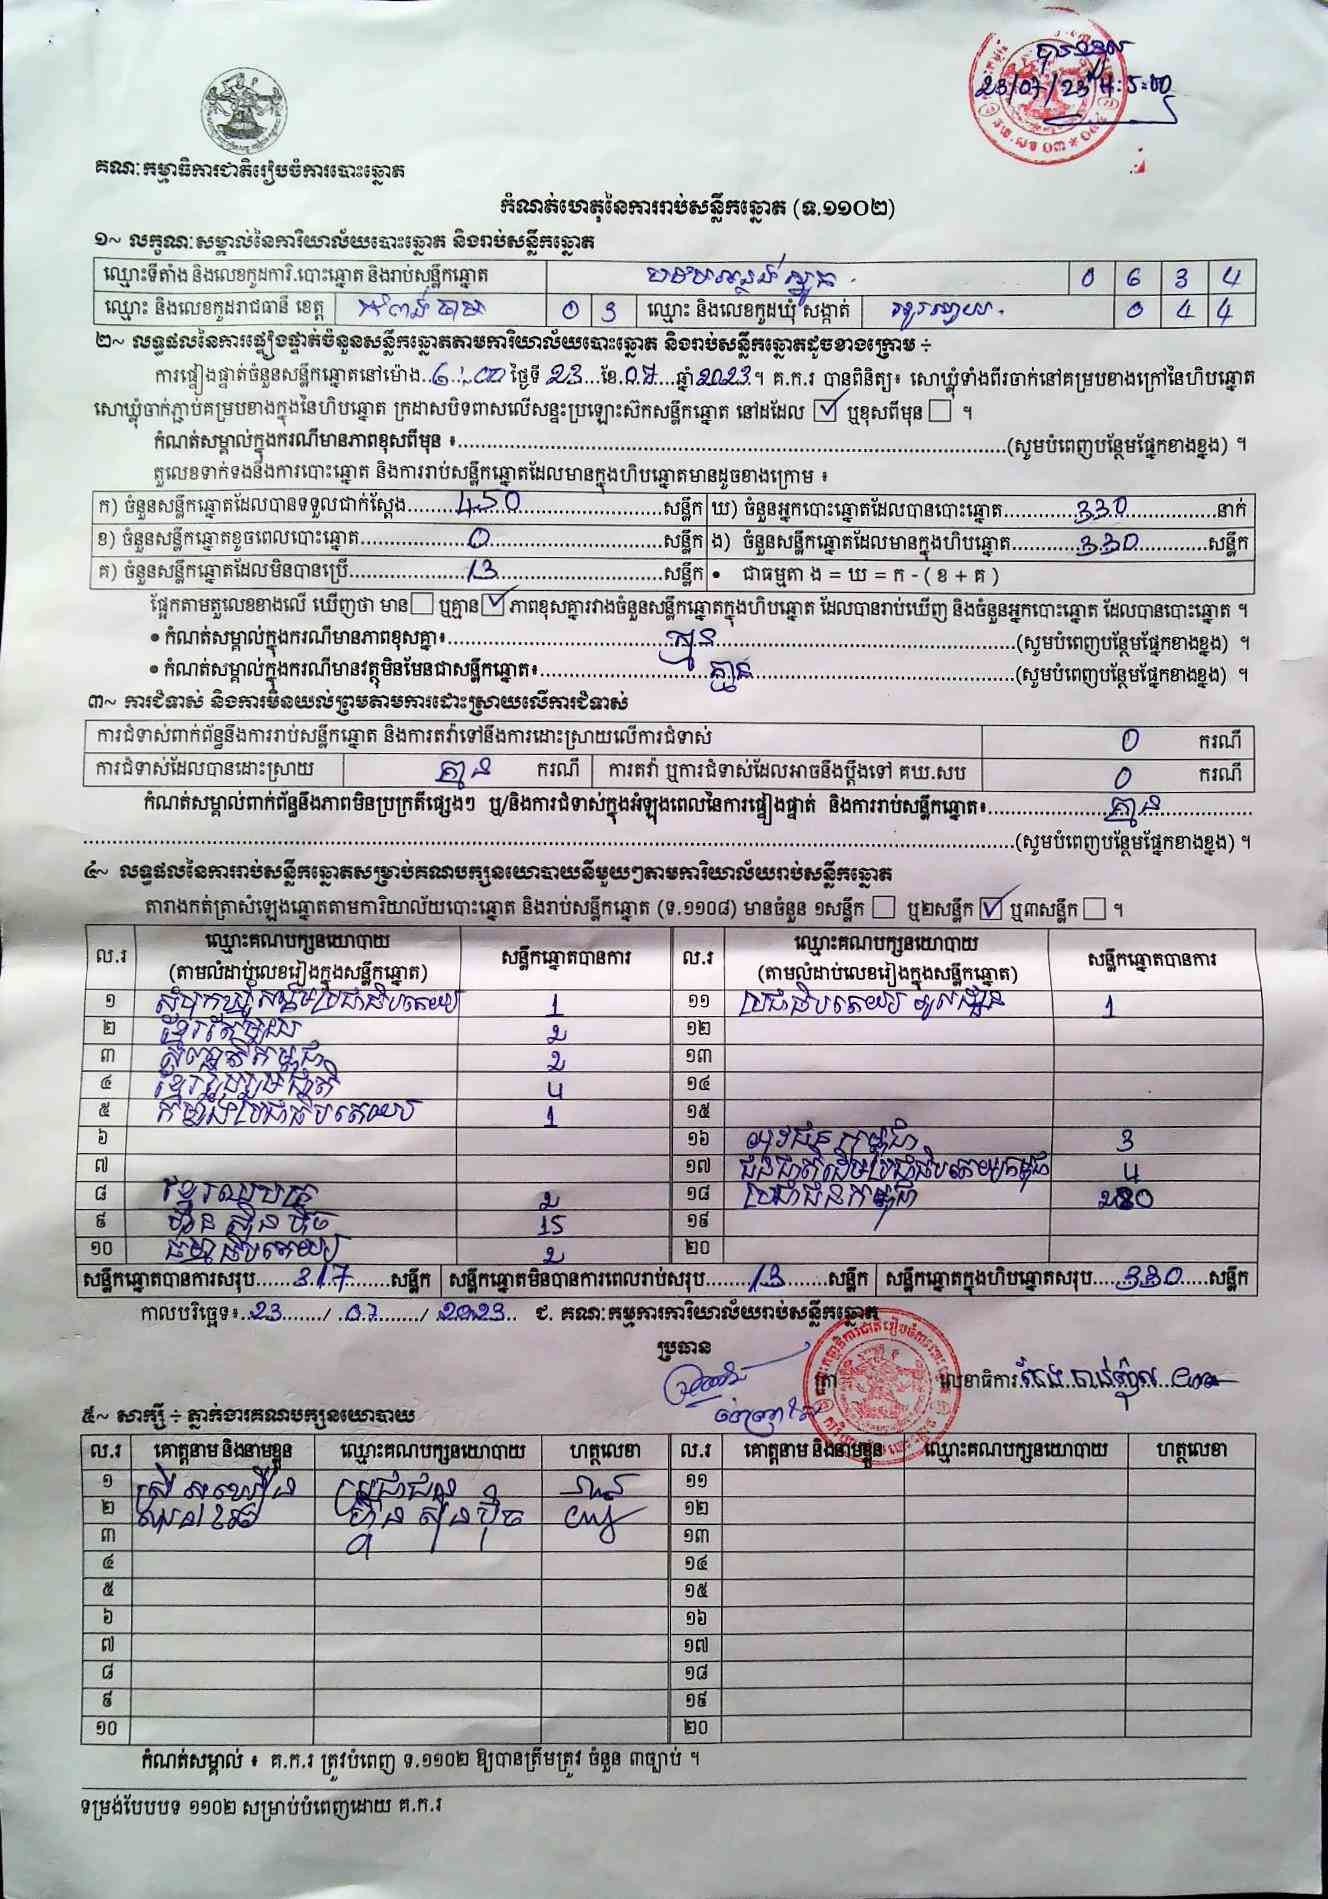 បានទទួល
23/07/23 ម៉ោង 5:00
គណៈកម្មាធិការជាតិរៀបចំការបោះឆ្នោត
កំណត់ហេតុនៃការរាប់សន្លឹកឆ្នោត (ទ.១១០២)
១~ លក្ខណៈសម្គាល់នៃការិយាល័យបោះឆ្នោត និងរាប់សន្លឹកឆ្នោត
ឈ្មោះទីតាំង និងលេខកូដការិ.បោះឆ្នោត និងរាប់សន្លឹកឆ្នោត 0 6 3 4
ឈ្មោះ និងលេខកូដរាជធានី ខេត្ត កំពង់ចាម 0 3 ឈ្មោះ និងលេខកូដឃុំ សង្កាត់ 0 4 4
២~ លទ្ធផលនៃការផ្ទៀងផ្ទាត់ចំនួនសន្លឹកឆ្នោតតាមការិយាល័យបោះឆ្នោត និងរាប់សន្លឹកឆ្នោតដូចខាងក្រោម ÷
ការផ្ទៀងផ្ទាត់ចំនួនសន្លឹកឆ្នោតនៅម៉ោង..6:00 ថ្ងៃទី 23...ខែ.07...ឆ្នាំ 2023.។ គ.ក.រ បានពិនិត្យ៖ សោឃ្លុំទាំងពីរចាក់នៅគម្របខាងក្រៅនៃហិបឆ្នោត
សោឃ្លុំចាក់ភ្ជាប់គម្របខាងក្នុងនៃហិបឆ្នោត ក្រដាសបិទពាសលើសន្ទះប្រឡោះស៊កសន្លឹកឆ្នោត នៅដដែល ☑ ឬខុសពីមុន ☐ ។
កំណត់សម្គាល់ក្នុងករណីមានភាពខុសពីមុន ៖........(សូមបំពេញបន្ថែមផ្នែកខាងខ្នង) ។
តួលេខទាក់ទងនឹងការបោះឆ្នោត និងការរាប់សន្លឹកឆ្នោតដែលមានក្នុងហិបឆ្នោតមានដូចខាងក្រោម ៖
ក) ចំនួនសន្លឹកឆ្នោតដែលបានទទួលជាក់ស្តែង......450......សន្លឹក ឃ) ចំនួនអ្នកបោះឆ្នោតដែលបានបោះឆ្នោត......330......នាក់
ខ) ចំនួនសន្លឹកឆ្នោតខូចពេលបោះឆ្នោត......0......សន្លឹក ង) ចំនួនសន្លឹកឆ្នោតដែលមានក្នុងហិបឆ្នោត......330......សន្លឹក
គ) ចំនួនសន្លឹកឆ្នោតដែលមិនបានប្រើ......13......សន្លឹក • ជាធម្មតា ង = ឃ = ក - ( ខ + គ )
ផ្អែកតាមតួលេខខាងលើ ឃើញថា មាន ☐ ឬគ្មាន ☑ ភាពខុសគ្នារវាងចំនួនសន្លឹកឆ្នោតក្នុងហិបឆ្នោត ដែលបានរាប់ឃើញ និងចំនួនអ្នកបោះឆ្នោត ដែលបានបោះឆ្នោត ។
• កំណត់សម្គាល់ក្នុងករណីមានភាពខុសគ្នា៖......គ្មាន......(សូមបំពេញបន្ថែមផ្នែកខាងខ្នង) ។
• កំណត់សម្គាល់ក្នុងករណីមានវត្ថុមិនមែនជាសន្លឹកឆ្នោត៖......គ្មាន......(សូមបំពេញបន្ថែមផ្នែកខាងខ្នង) ។
៣~ ការជំទាស់ និងការមិនយល់ព្រមតាមការដោះស្រាយលើការជំទាស់
ការជំទាស់ពាក់ព័ន្ធនឹងការរាប់សន្លឹកឆ្នោត និងការតវ៉ាទៅនឹងការដោះស្រាយលើការជំទាស់ 0 ករណី
ការជំទាស់ដែលបានដោះស្រាយ គ្មាន ករណី ការតវ៉ា ឬការជំទាស់ដែលអាចនឹងប្តឹងទៅ គឃ.សប 0 ករណី
កំណត់សម្គាល់ពាក់ព័ន្ធនឹងភាពមិនប្រក្រតីផ្សេងៗ ឬ/និងការជំទាស់ក្នុងអំឡុងពេលនៃការផ្ទៀងផ្ទាត់ និងការរាប់សន្លឹកឆ្នោត៖......គ្មាន......
......(សូមបំពេញបន្ថែមផ្នែកខាងខ្នង) ។
៤~ លទ្ធផលនៃការរាប់សន្លឹកឆ្នោតសម្រាប់គណបក្សនយោបាយនីមួយៗតាមការិយាល័យរាប់សន្លឹកឆ្នោត
តារាងកត់ត្រាសំឡេងឆ្នោតតាមការិយាល័យបោះឆ្នោត និងរាប់សន្លឹកឆ្នោត (ទ.១១០៨) មានចំនួន ១សន្លឹក ☐ ឬ២សន្លឹក ☑ ឬ៣សន្លឹក ☐ ។
ល.រ ឈ្មោះគណបក្សនយោបាយ សន្លឹកឆ្នោតបានការ ល.រ ឈ្មោះគណបក្សនយោបាយ សន្លឹកឆ្នោតបានការ
(តាមលំដាប់លេខរៀងក្នុងសន្លឹកឆ្នោត) (តាមលំដាប់លេខរៀងក្នុងសន្លឹកឆ្នោត)
១ សំបុកឃ្មុំសង្គមប្រជាធិបតេយ្យ 1 ១១ ប្រជាធិបតេយ្យមូលដ្ឋាន 1
២ ខ្មែរតែមួយ 2 ១២
៣ 2 ១៣
៤ ខ្មែររួបរួមជាតិ 4 ១៤
៥ កម្លាំងប្រជាធិបតេយ្យ 1 ១៥
៦ ១៦ យុវជនកម្ពុជា 3
៧ ១៧ ជនជាតិដើមប្រជាធិបតេយ្យកម្ពុជា 4
៨ 2 ១៨ ប្រជាជនកម្ពុជា 280
៩ ហ៊្វុនស៊ិនប៉ិច 15 ១៩
១០ ធម្មាធិបតេយ្យ 2 ២០
សន្លឹកឆ្នោតបានការសរុប......317......សន្លឹក សន្លឹកឆ្នោតមិនបានការពេលរាប់សរុប......13......សន្លឹក សន្លឹកឆ្នោតក្នុងហិបឆ្នោតសរុប......330.....សន្លឹក
កាលបរិច្ឆេទ៖..23......./ .07......./ 2023.. ជ. គណៈកម្មការការិយាល័យរាប់សន្លឹកឆ្នោត
ប្រធាន
ត្រា លេខាធិការ
៥~ សាក្សី ÷ ភ្នាក់ងារគណបក្សនយោបាយ
ល.រ គោត្តនាម និងនាមខ្លួន ឈ្មោះគណបក្សនយោបាយ ហត្ថលេខា ល.រ គោត្តនាម និងនាមខ្លួន ឈ្មោះគណបក្សនយោបាយ ហត្ថលេខា
១ ប្រជាជន ១១
២ ហ៊្វុនស៊ិនប៉ិច ១២
៣ ១៣
៤ ១៤
៥ ១៥
៦ ១៦
៧ ១៧
៨ ១៨
៩ ១៩
១០ ២០
កំណត់សម្គាល់ ៖ គ.ក.រ ត្រូវបំពេញ ទ.១១០២ ឱ្យបានត្រឹមត្រូវ ចំនួន ៣ច្បាប់ ។
ទម្រង់បែបបទ ១១០២ សម្រាប់បំពេញដោយ គ.ក.រ